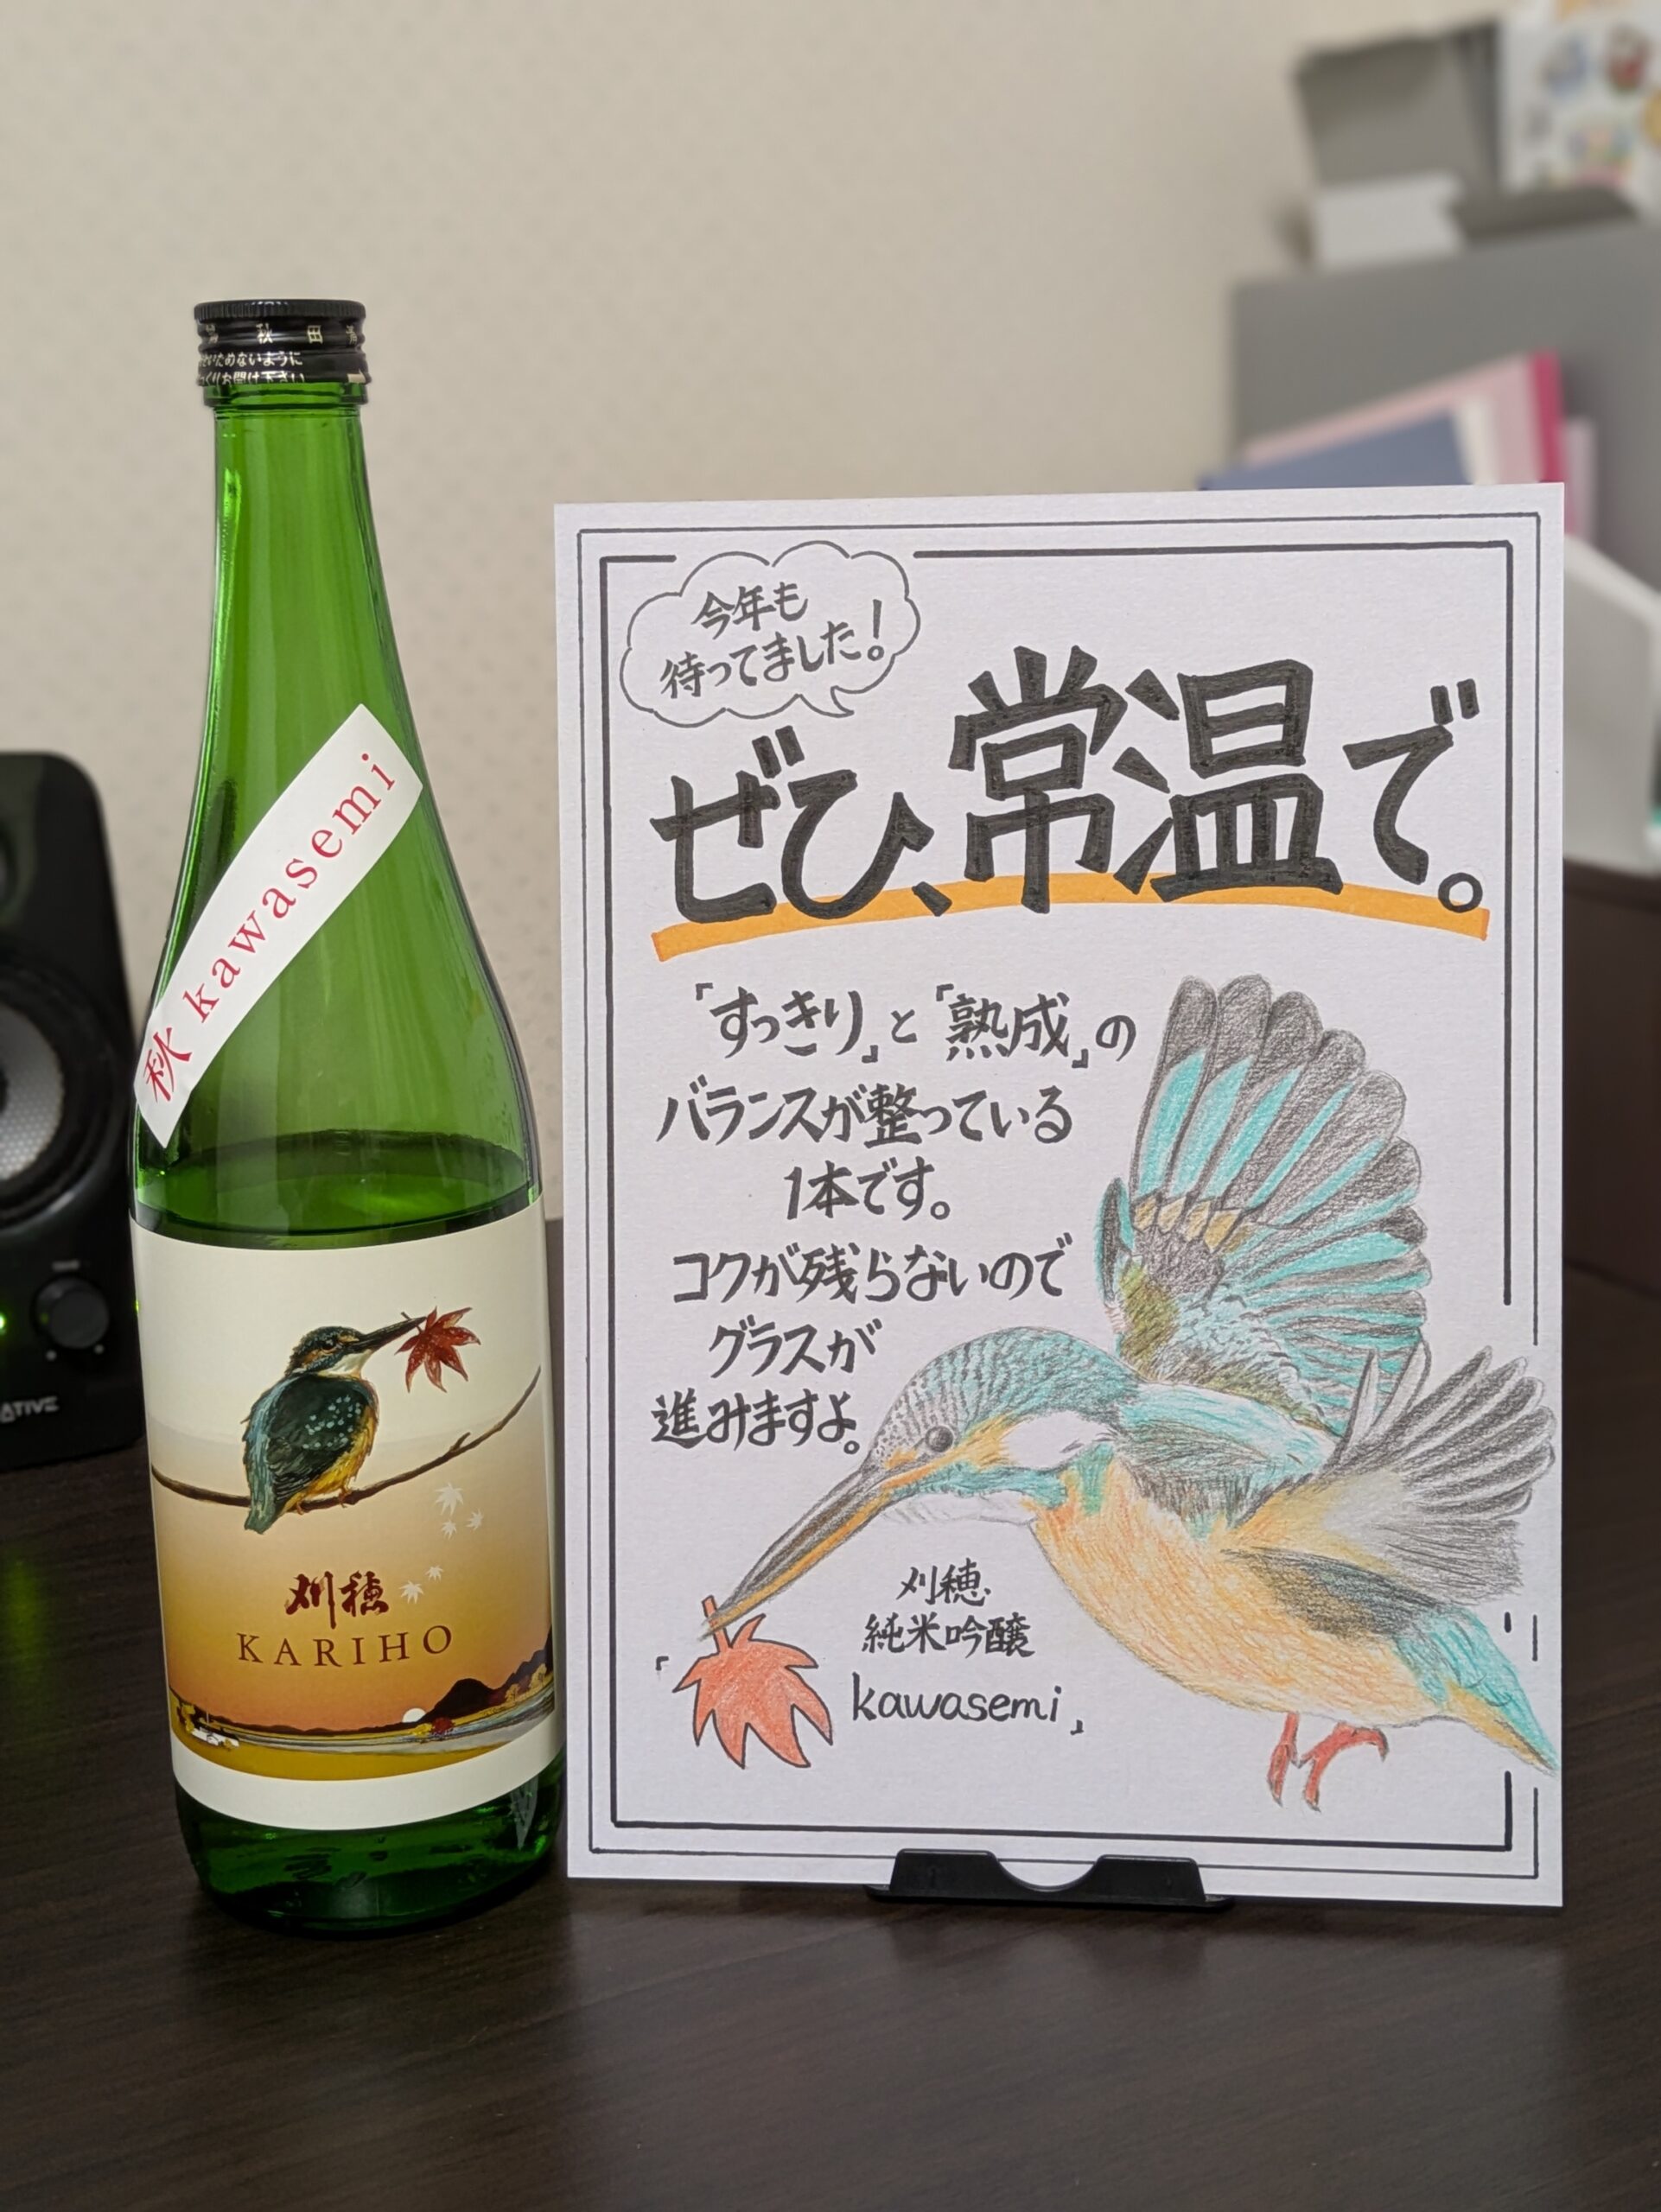 秋田
ためないように
くりお開け下さい
秋 kawasemi
刈穂
KARIHO
今年も
待ってました！
ぜひ、常温で。
「すっきり」と「熟成」の
バランスが整っている
1本です。
コクが残らないので
グラスが
進みますよ。
「刈穂
純米吟醸
kawasemi」
ATIVE